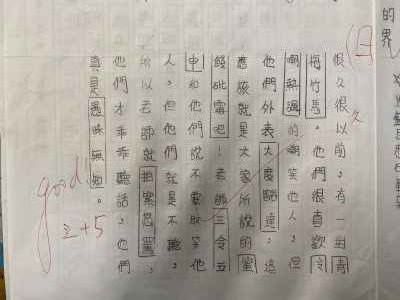 的界
很久很久以前，有一對青
梅竹馬。他們很喜歡冷
嘲熱諷的嘲笑他人，但
他們外表大度豁達，這
應該就是大家所說的蜜
餞砒霜吧！老師三令五
申和他們說不要取笑他
人，但他們就是不聽，
所以老師就拍案怒罵，
他們才乖乖聽話，他們
真是愚昧無知。
good
2+5